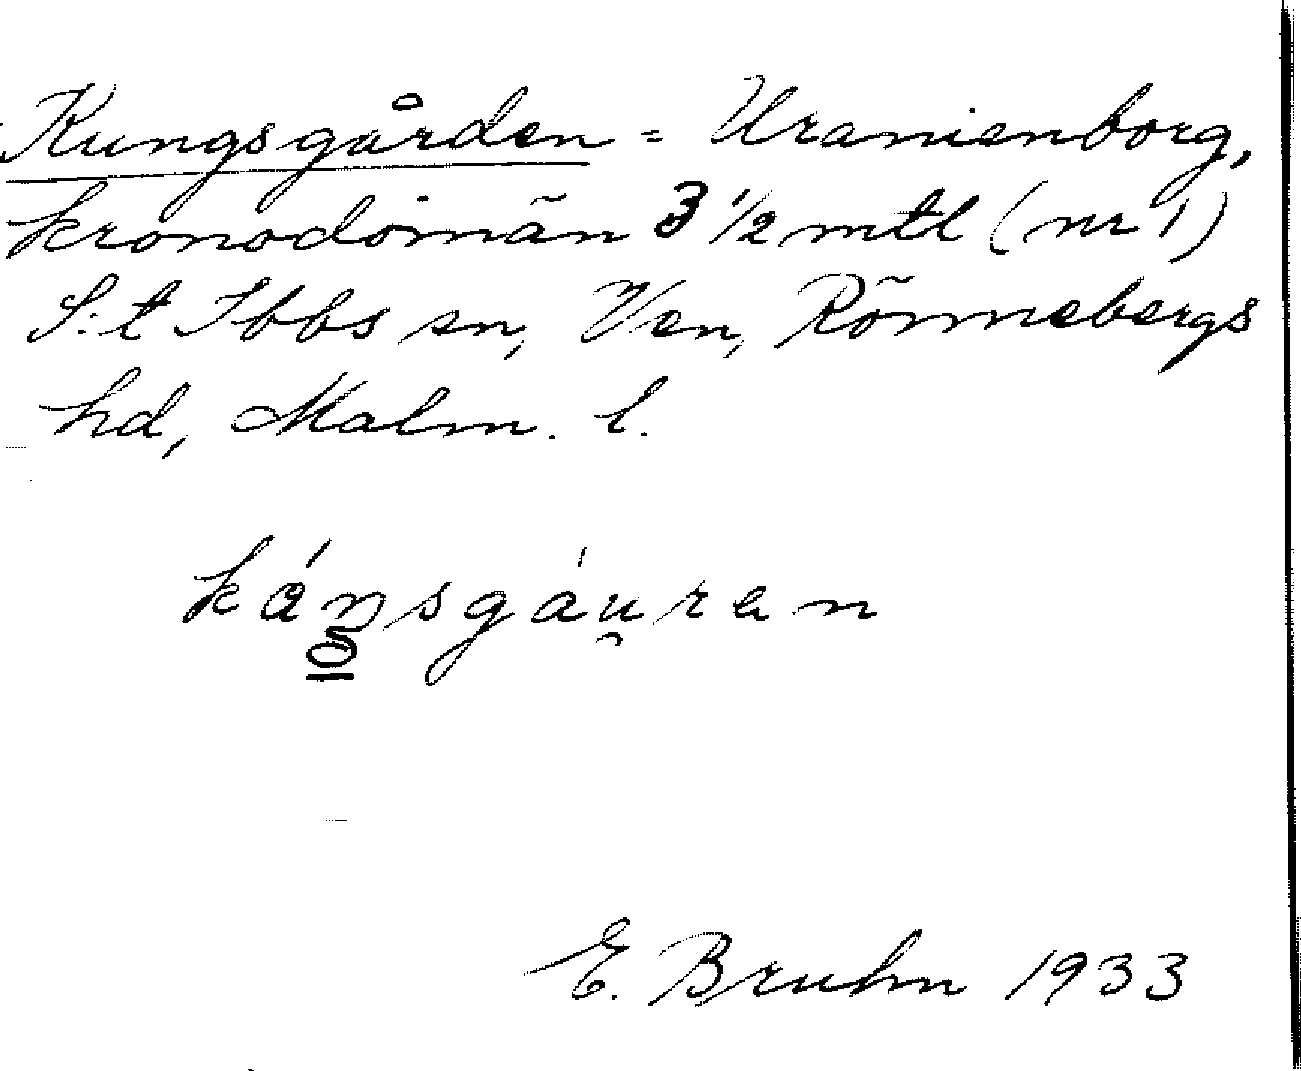 Kungsgården = Uranienborg,
kronodomän 3 1/2 mtl (nr 1)
S:t Ibbs sn, Ven, Rönnebergs
hd, Malm. l.
káŋsgáu̯ren
E. Bruhn 1933